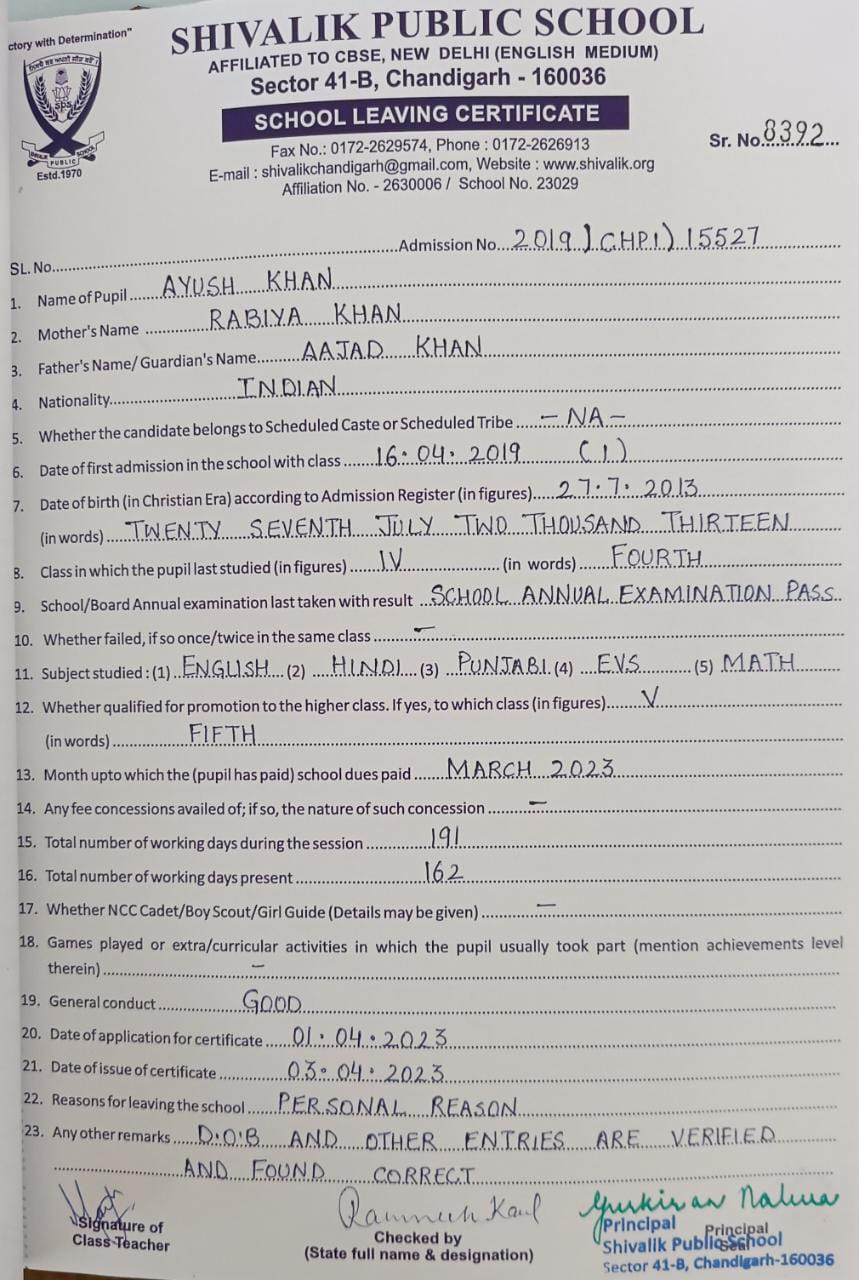 ctory with Determination"
SHIVALIK PUBLIC SCHOOL
AFFILIATED TO CBSE, NEW DELHI (ENGLISH MEDIUM)
Sector 41-B, Chandigarh - 160036
SCHOOL LEAVING CERTIFICATE
Fax No.: 0172-2629574, Phone : 0172-2626913
E-mail : shivalikchandigarh@gmail.com, Website : www.shivalik.org
Affiliation No. - 2630006 / School No. 23029
Sr. No. 8392
SPS
PUBLIC SCHOOL
Estd.1970
SL. No. Admission No. 2019)(HP1)15527
1. Name of Pupil AYUSH KHAN
2. Mother's Name RABIYA KHAN
3. Father's Name/ Guardian's Name AAJAD KHAN
4. Nationality INDIAN
5. Whether the candidate belongs to Scheduled Caste or Scheduled Tribe - NA -
6. Date of first admission in the school with class 16.04.2019 (1)
7. Date of birth (in Christian Era) according to Admission Register (in figures) 27.7.2013
(in words) TWENTY SEVENTH JULY TWO THOUSAND THIRTEEN
8. Class in which the pupil last studied (in figures) IV (in words) FOURTH
9. School/Board Annual examination last taken with result SCHOOL ANNUAL EXAMINATION PASS
10. Whether failed, if so once/twice in the same class -
11. Subject studied : (1) ENGLISH (2) HINDI (3) PUNJABI (4) EVS (5) MATH
12. Whether qualified for promotion to the higher class. If yes, to which class (in figures) V
(in words) FIFTH
13. Month upto which the (pupil has paid) school dues paid MARCH 2023
14. Any fee concessions availed of; if so, the nature of such concession -
15. Total number of working days during the session 191
16. Total number of working days present 162
17. Whether NCC Cadet/Boy Scout/Girl Guide (Details may be given) -
18. Games played or extra/curricular activities in which the pupil usually took part (mention achievements level
therein) -
19. General conduct GOOD
20. Date of application for certificate 01.04.2023
21. Date of issue of certificate 03.04.2023
22. Reasons for leaving the school PERSONAL REASON
23. Any other remarks D.O.B AND OTHER ENTRIES ARE VERIFIED
AND FOUND CORRECT
Signature of
Class Teacher
Checked by
(State full name & designation)
Principal
Seal
Principal
Shivalik Public School
Sector 41-B, Chandigarh-160036